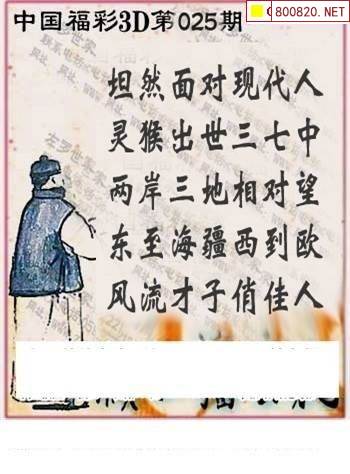 中国福彩3D第025期
800820.NET
坦然面对现代人
灵猴出世三七中
两岸三地相对望
东至海疆西到欧
风流才子俏佳人